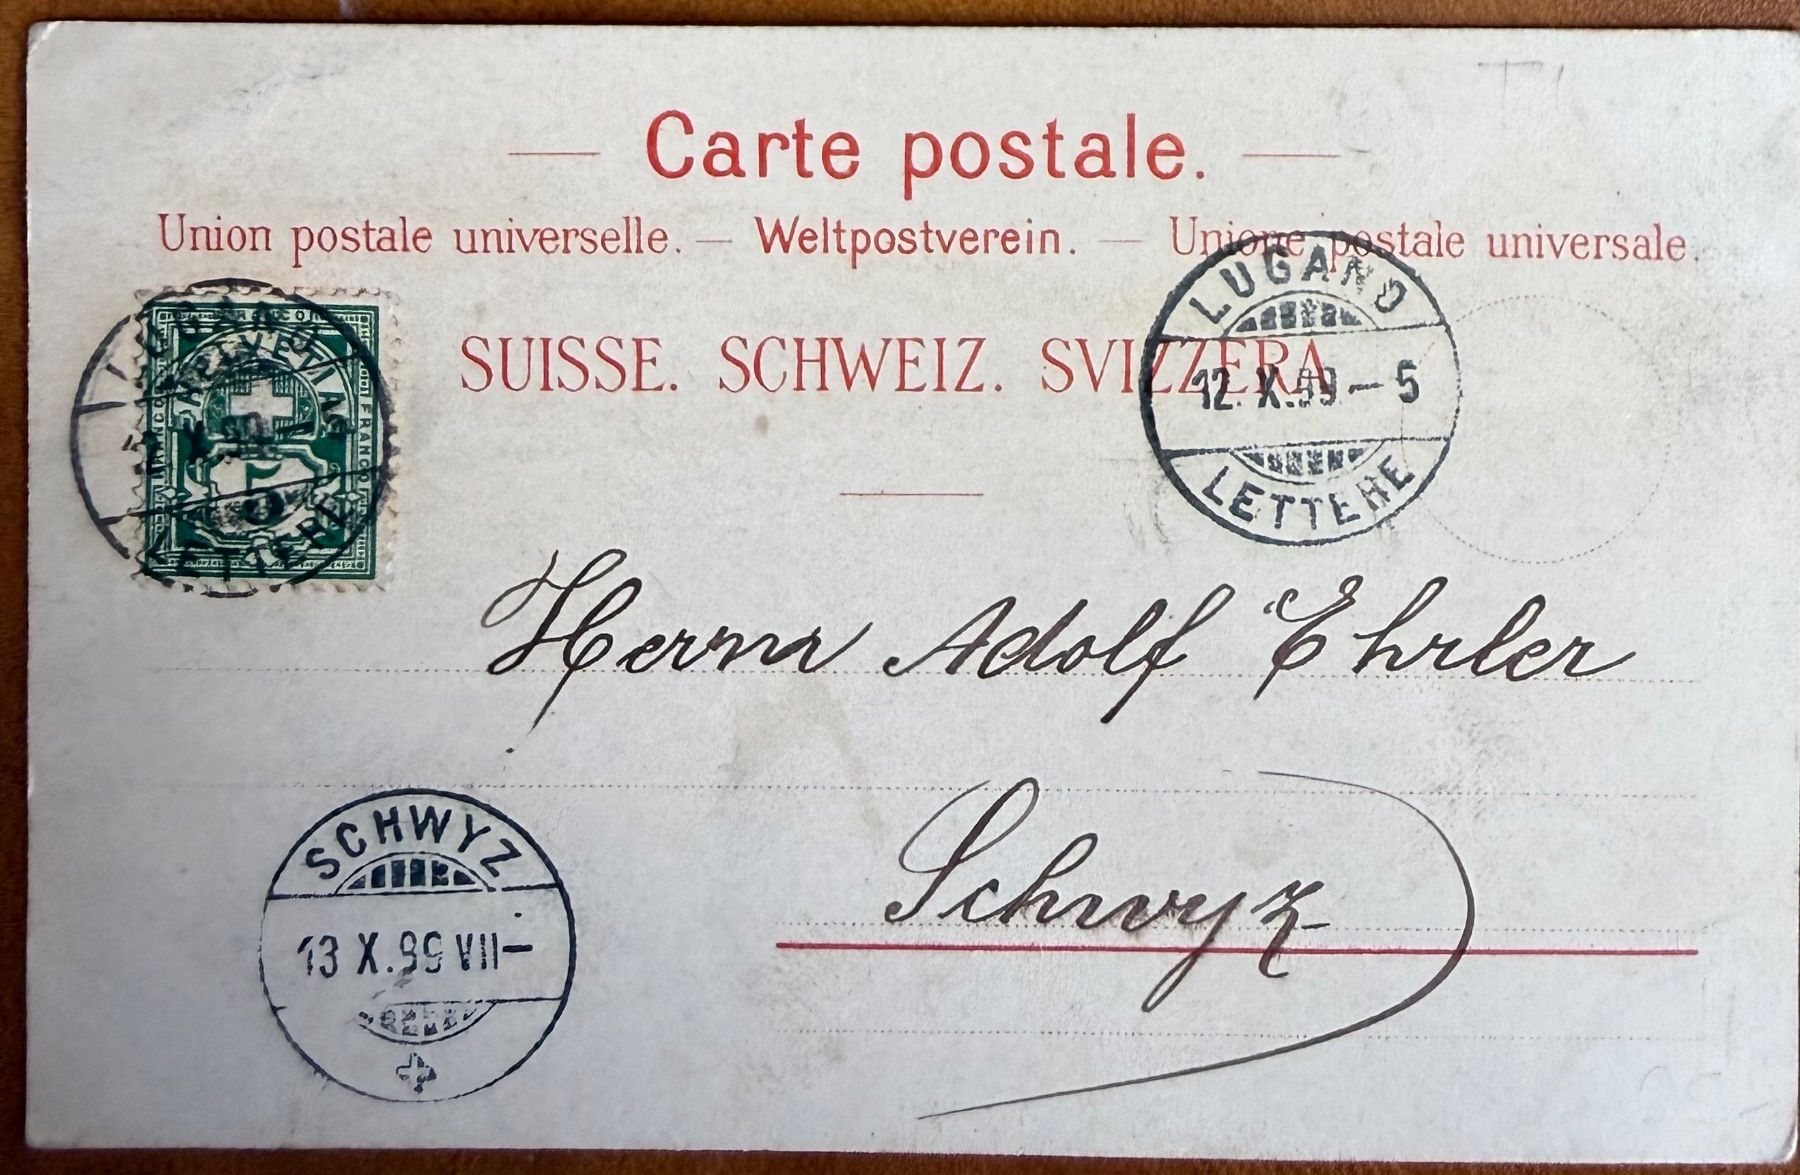 Carte postale.
Union postale universelle. — Weltpostverein. — Unione postale universale.
SUISSE. SCHWEIZ. SVIZZERA
LUGANO
12. X. 99. — 5
LETTERE
LUGANO
HELVETIA
FRANCO
FRANCO
5
LETTERE
Herrn Adolf Ehrler
Schwyz
SCHWYZ
13 X. 99 VII —